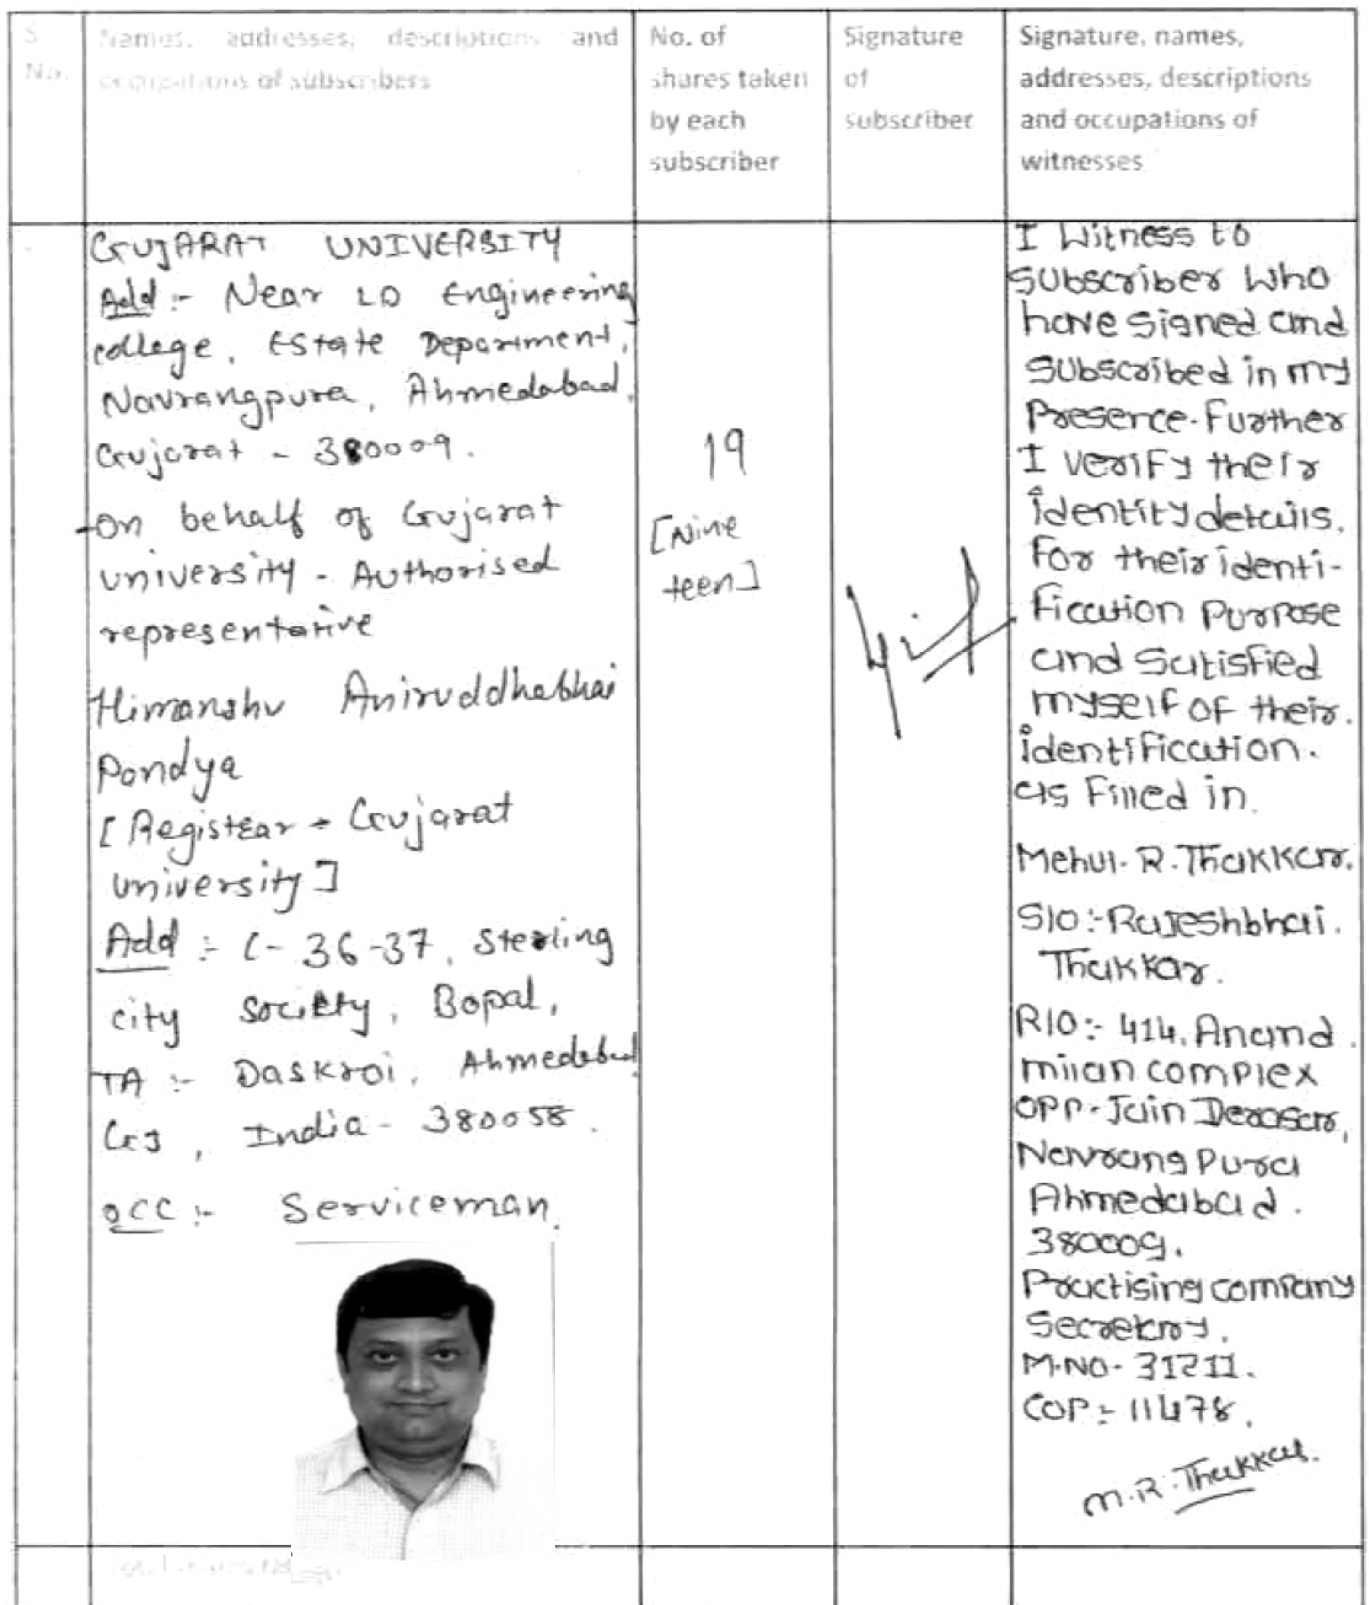 S.
No.
Names, addresses, descriptions and
occupations of subscribers
No. of
shares taken
by each
subscriber
Signature
of
subscriber
Signature, names,
addresses, descriptions
and occupations of
witnesses
GUJARAT UNIVERSITY
Add :- Near LD Engineering
college, Estate Department,
Navrangpura, Ahmedabad,
Gujarat - 380009.
-on behalf of Gujarat
university - Authorised
representative
Himanshu Aniruddhabhai
Pandya
[Registrar - Gujarat
university]
Add :- C-36-37, Sterling
city Society, Bopal,
TA :- Daskroi, Ahmedabad
GJ, India - 380058.
occ :- Serviceman.
19
[Nine
teen]
I Witness to
Subscriber who
have signed and
Subscribed in my
Presence. Further
I verify their
identity details.
For their identi-
fication Purpose
and Satisfied
myself of their.
identification.
as Filled in.
Mehul. R. Thakkar.
S/O :- Rajeshbhai.
Thakkar.
R/O :- 414, Anand
milan complex
opp. Jain Derasar,
Navrangpura
Ahmedabad.
380009.
Practising company
Secretary.
M.NO- 31211.
COP :- 11478.
M.R. Thakkar.